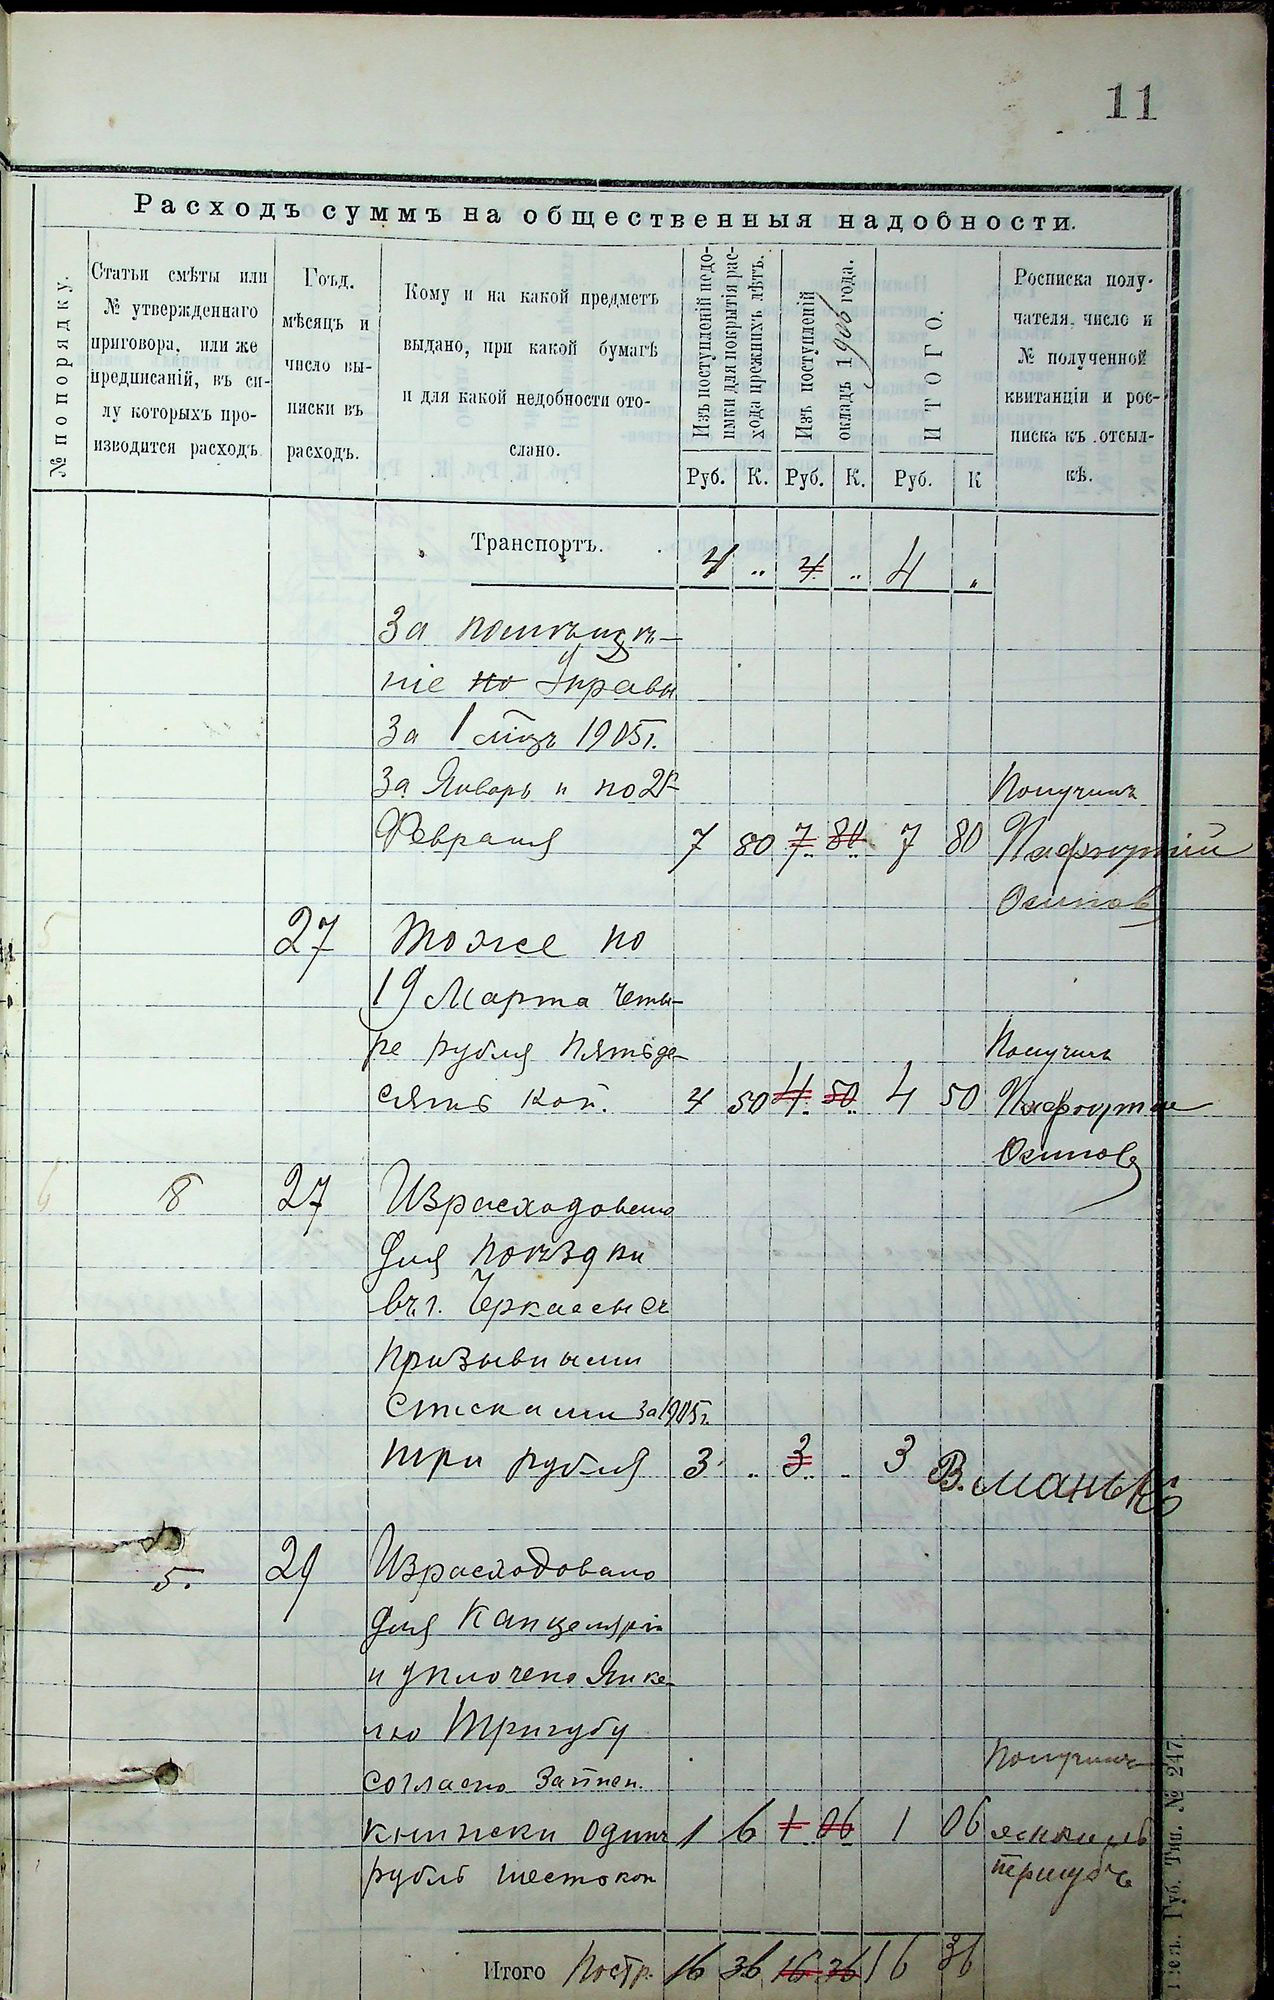 11
Расходъ суммъ на общественныя надобности.
№ по порядку.
Статьи смѣты или
№ утвержденнаго
приговора, или же
предписаній, въ си-
лу которыхъ про-
изводится расходъ
Годъ,
мѣсяцъ и
число вы-
писки въ
расходъ.
Кому и на какой предметъ
выдано, при какой бумагѣ
и для какой недобности ото-
слано.
Изъ поступленій недо-
имки для покрытія рас-
хода прежнихъ лѣтъ.
Изъ поступленій
окладъ 1906 года.
ИТОГО.
Росписка полу-
чателя, число и
№ полученной
квитанціи и рос-
писка къ отсыл-
кѣ.
Руб. К. Руб. К. Руб. К
Транспортъ. 4 „ 4 „ 4 „
За помѣщѣ-
ніе по Управы
За 1 мцъ 1905 г.
За Январь и по 2
Получилъ
Февраля 7 80 7 80 7 80 Пафнутій
Осипов
5 27 Тоже по
19 Марта Четы-
ре рубля Пятьде-
Получилъ
сятъ коп. 4 50 4 50 4 50 Пафнутій
Осиповъ
6 8 27 Израсходовано
для поѣздки
въ г. Черкассы съ
призывными
списками за 1905 г.
три рубля 3 „ 3 „ 3 В. Манько
5. 29 Израсходовано
для Канцеляріи
и уплочено Янке-
лю Тригубу
Получилъ
согласно
книжки одинъ 1 6 1 06 1 06
рубль шесть коп
Итого Постр. 16 36 16 36 16 36
Губ. Тип. № 247.